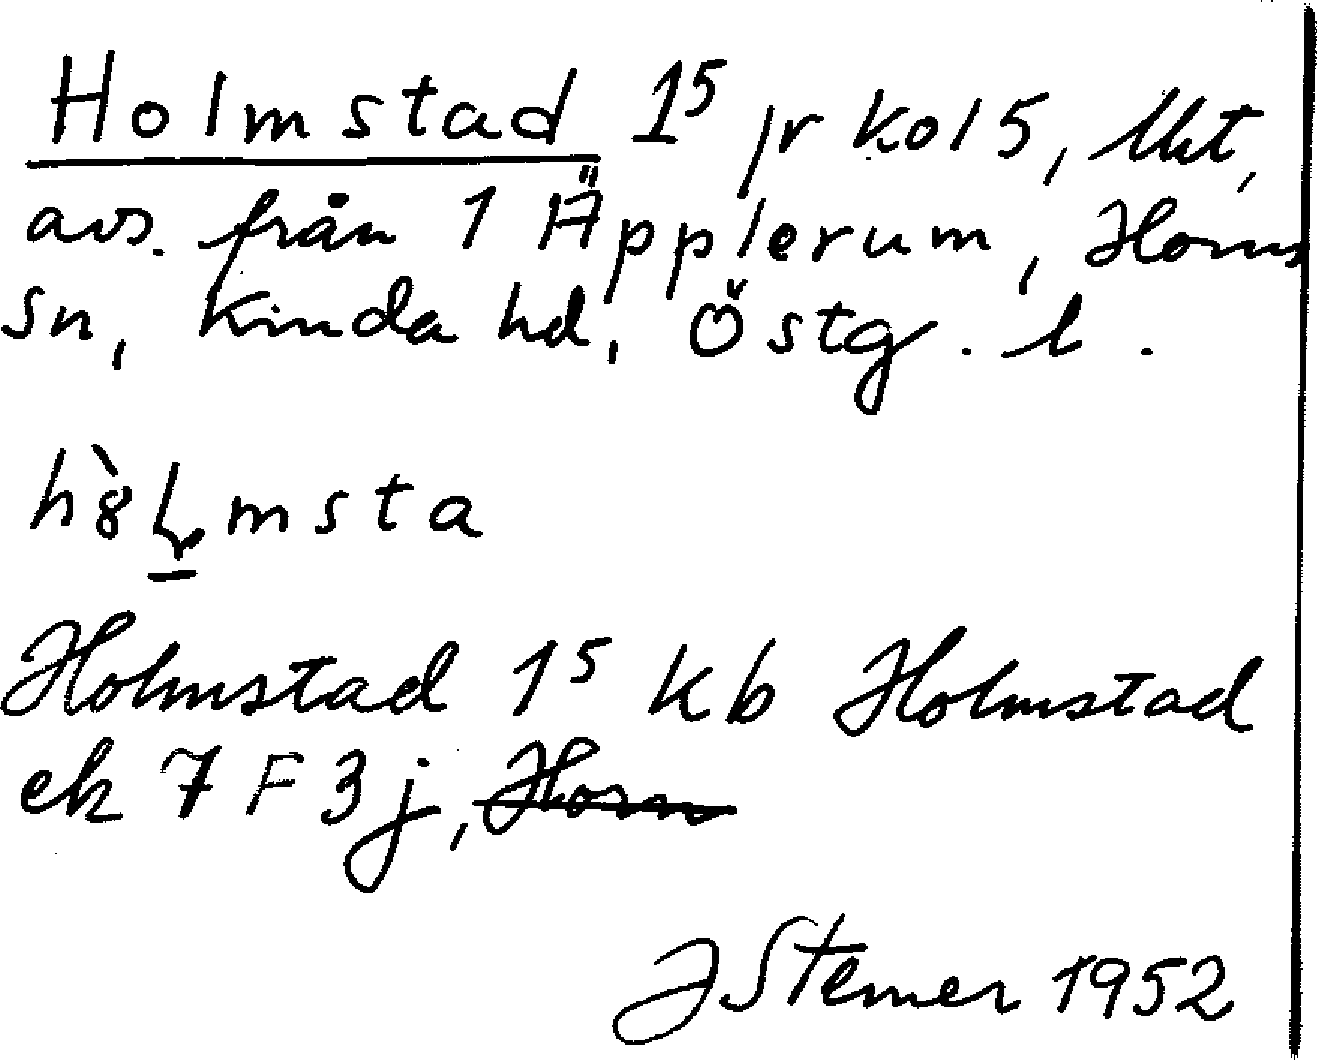 Holmstad 1⁵ jr kol 5, Utkt,
avs. från 1 Äpplerum, Horns
sn, Kinda hd, Östg. l.
msta
Holmstad 1⁵ Kb Holmstad
ek 7 F 3 j, Horn
J Stemer 1952